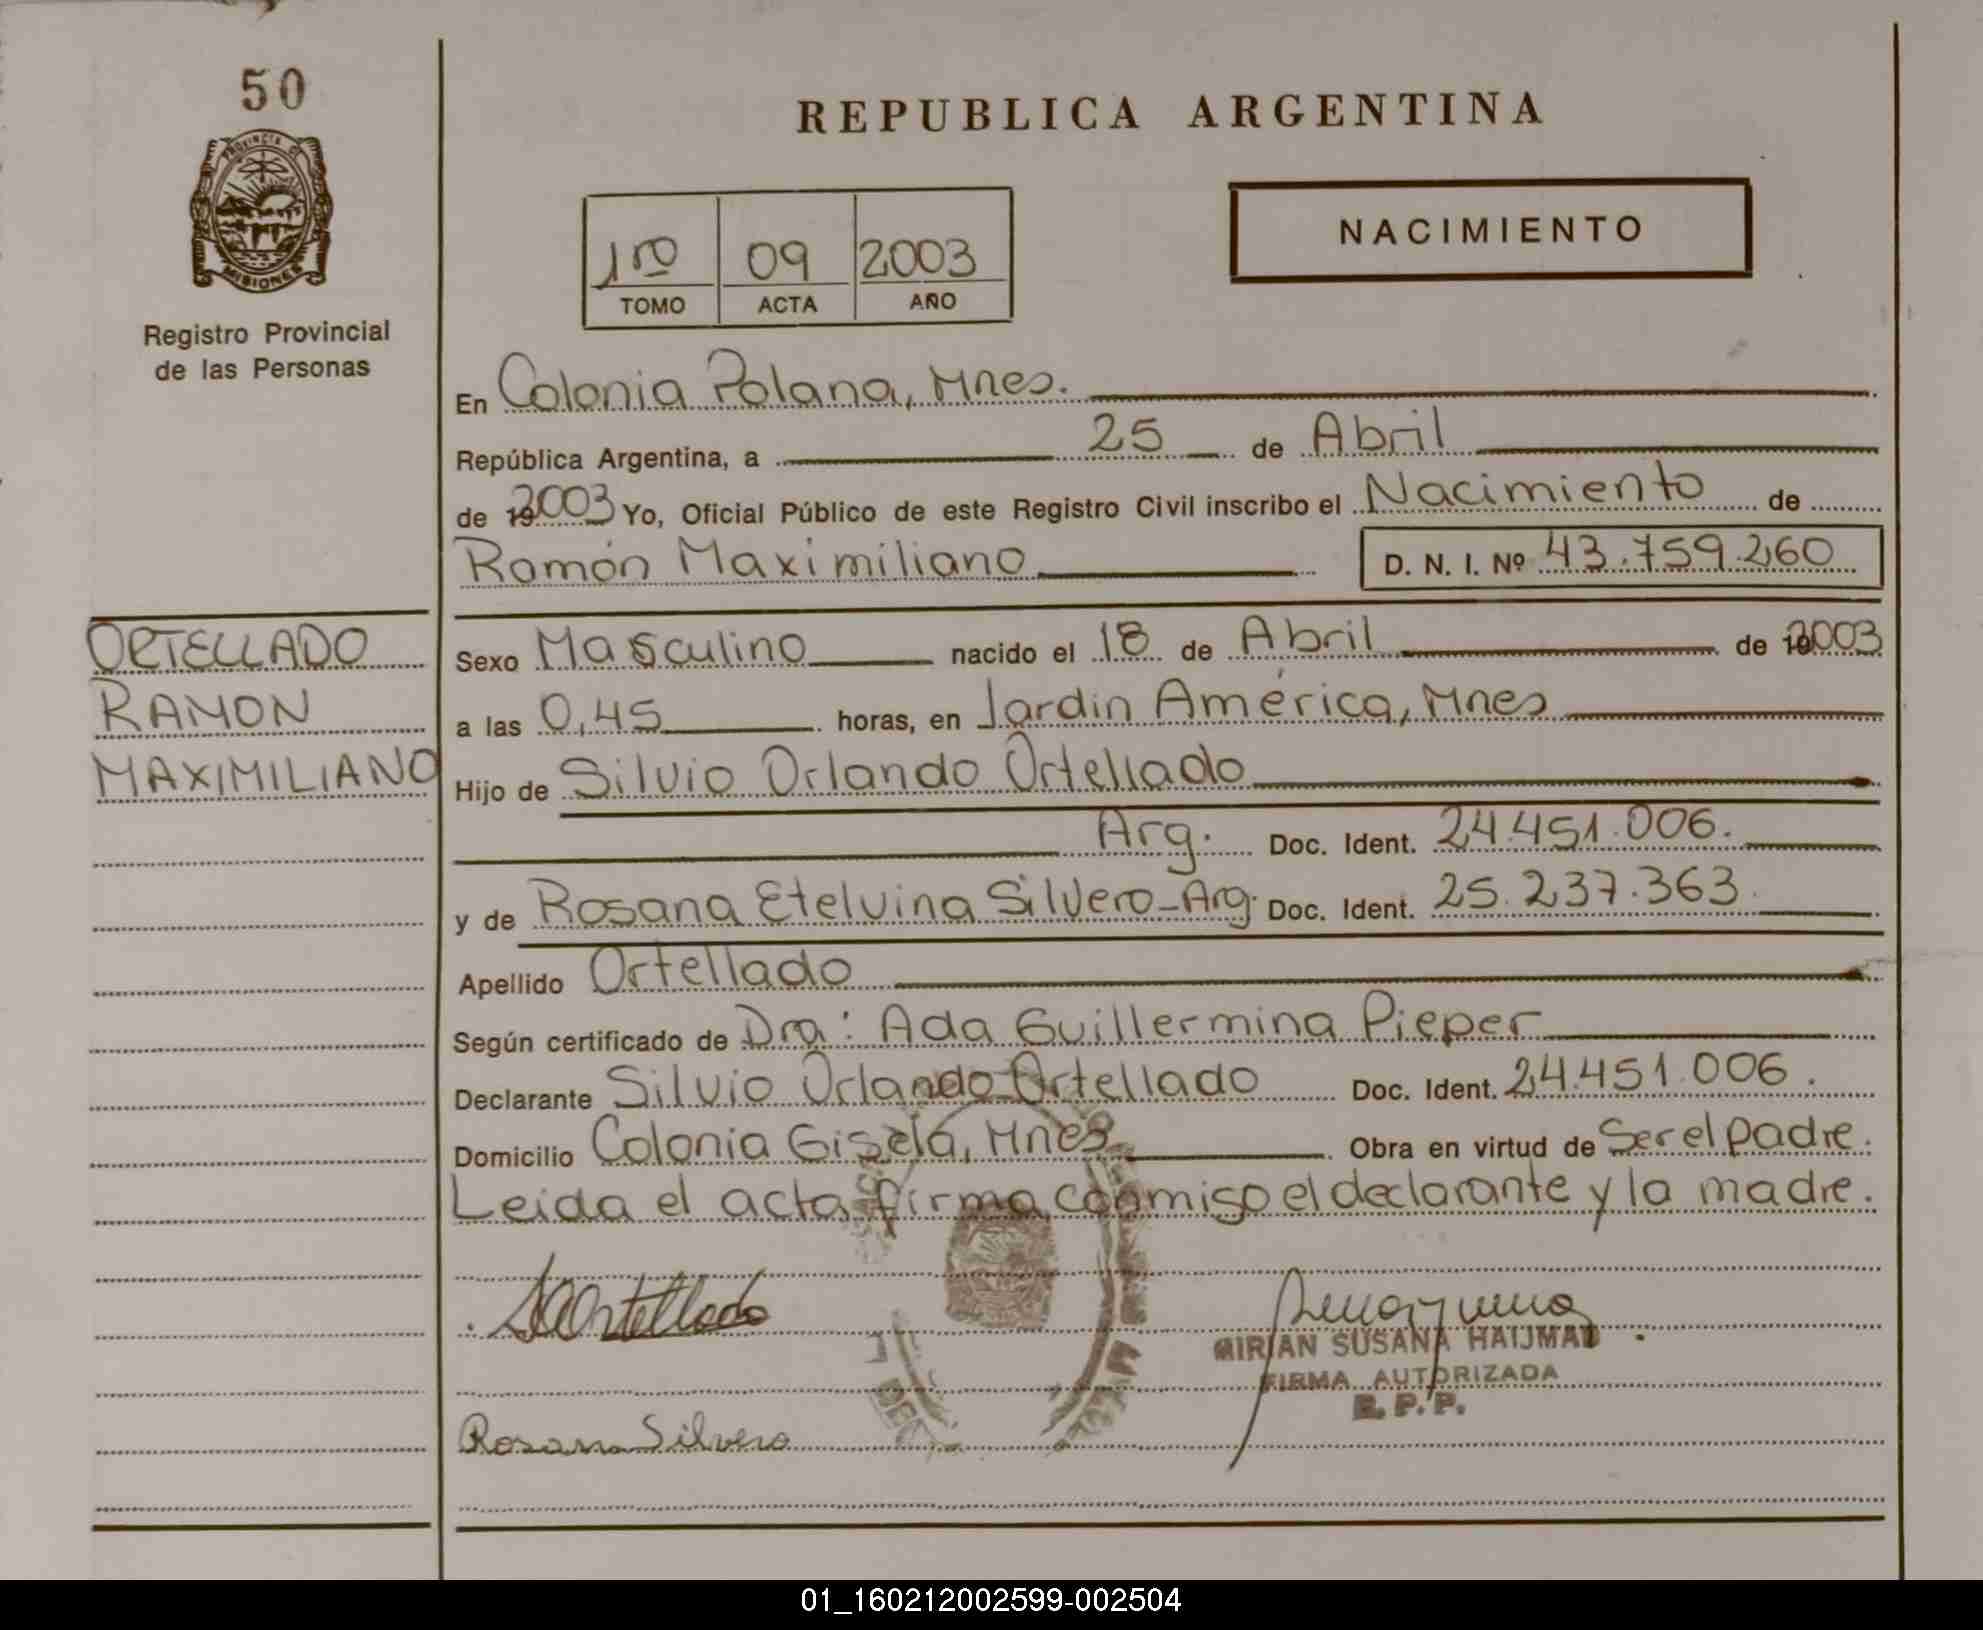 50
PROVINCIA DE
MISIONES
Registro Provincial
de las Personas
REPUBLICA ARGENTINA
1ro 09 2003
TOMO ACTA AÑO
NACIMIENTO
En Colonia Polana, Mnes.
República Argentina, a 25 de Abril
de 2003 Yo, Oficial Público de este Registro Civil inscribo el Nacimiento de
Ramón Maximiliano D. N. I. Nº 43.759.260
ORTELLADO
RAMON
MAXIMILIANO
Sexo Masculino nacido el 18 de Abril de 2003
a las 0,45 horas, en Jardin América, Mnes
Hijo de Silvio Orlando Ortellado
Arg. Doc. Ident. 24.451.006.
y de Rosana Etelvina Silvero-Arg. Doc. Ident. 25.237.363.
Apellido Ortellado
Según certificado de Dra: Ada Guillermina Pieper
Declarante Silvio Orlando Ortellado Doc. Ident. 24.451.006.
Domicilio Colonia Gisela, Mnes Obra en virtud de Ser el padre.
Leida el acta, firma conmigo el declarante y la madre.
SOOrtellado
MIRIAN SUSANA HAIJMAD
FIRMA AUTORIZADA
R. P. P.
Rosana Silvero
01_160212002599-002504